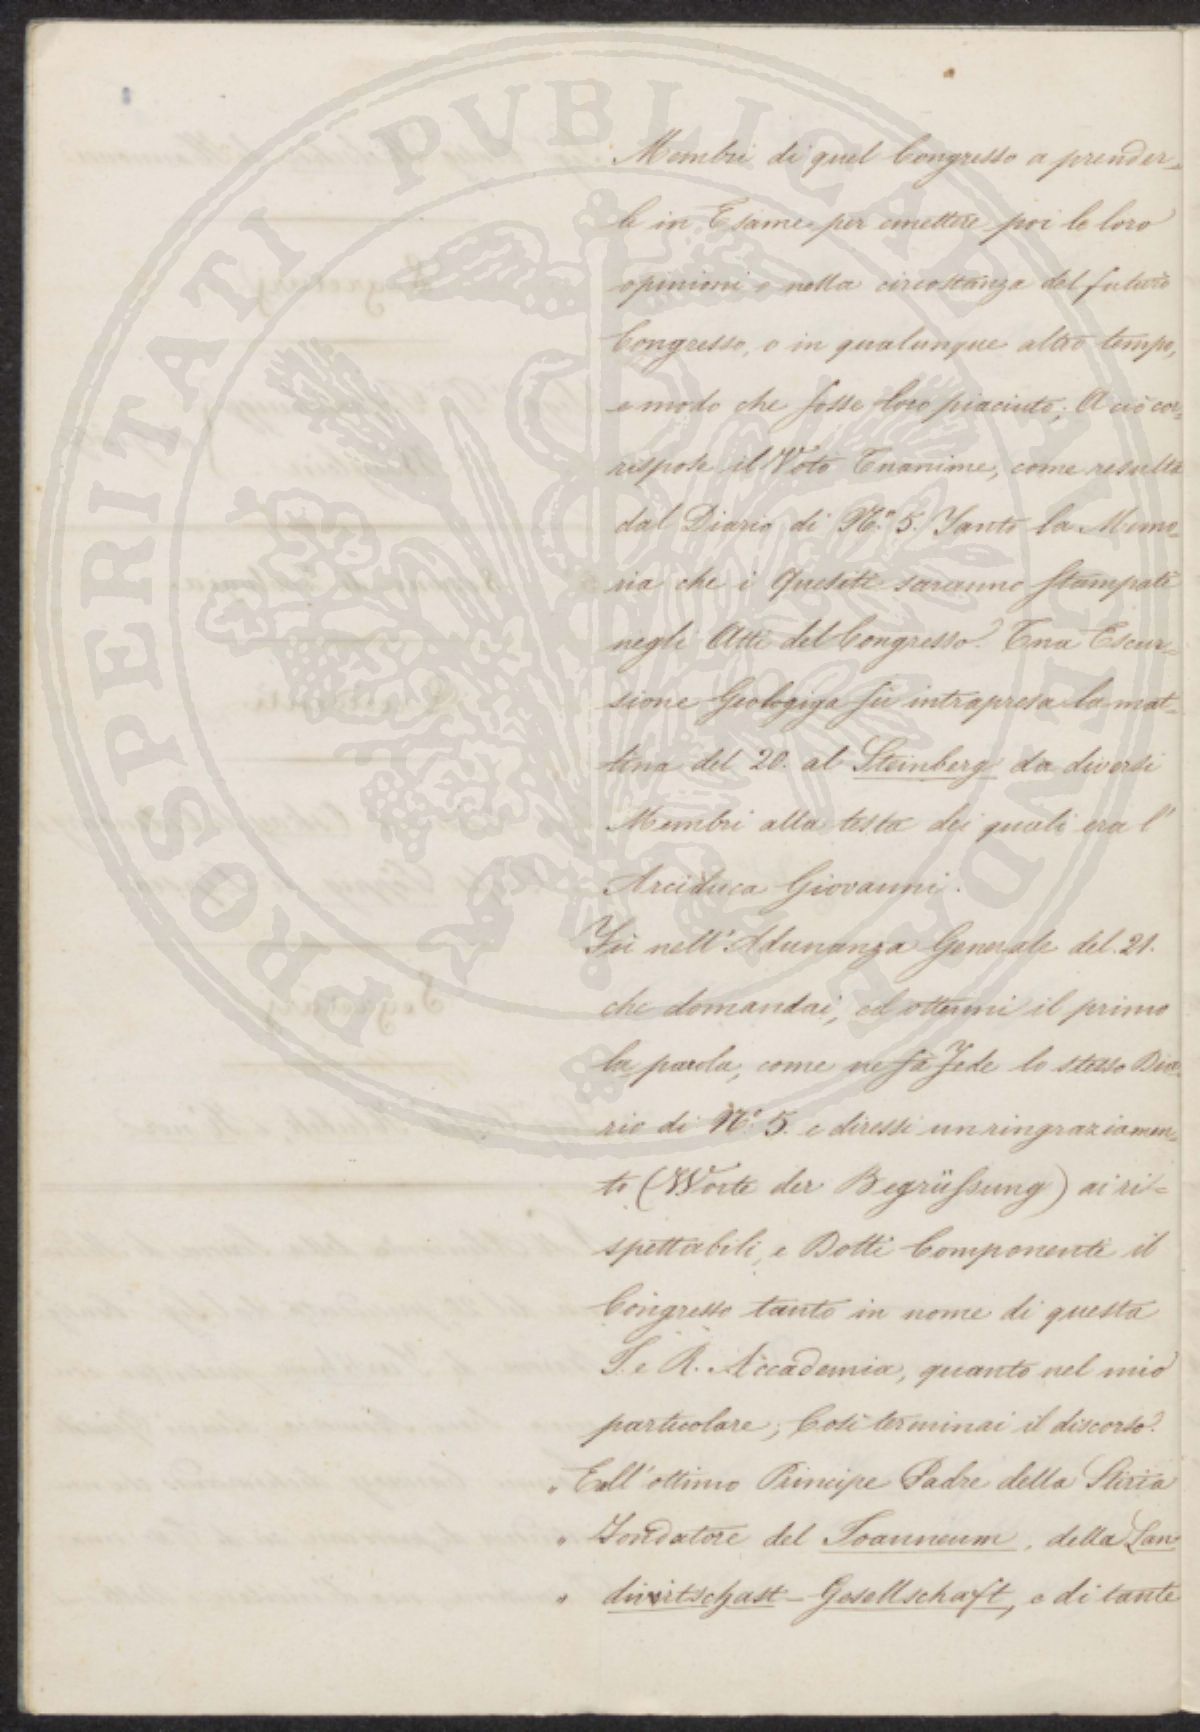 PROSPERITATI PUBLICAE AUGENDAE
Membri di quel Congresso a prender-
le in Esame per emettere poi le loro
opinioni o nella circostanza del futuro
Congresso, o in qualunque altro tempo,
e modo che fosse loro piaciuto; A ciò cor-
rispose il Voto Unanime, come resulta
dal Diario di N.º 5. Tanto la Memo-
ria che i Quesiti saranno stampati
negli Atti del Congresso. Una Escur-
sione Geologiga fù intrapresa la mat-
tina del 20. al Steinberg da diversi
Membri alla testa dei quali era l'
Arciduca Giovanni.
Fù nell'Adunanza Generale del 21.
che domandai, ed ottenni il primo
la parola, come ne fà Fede lo stesso Dia-
rio di N.º 5. e diressi un ringraziamen-
to (Worte der Begrüssung) ai ri-
spettabili, e Dotti Componenti il
Congresso tanto in nome di questa
I. e R. Accademia, quanto nel mio
particolare; Così terminai il discorso.
" E all'ottimo Principe Padre della Stiria
" Fondatore del Joanneum, della Lan
" dwirtschast-Gesellschaft, e di tante